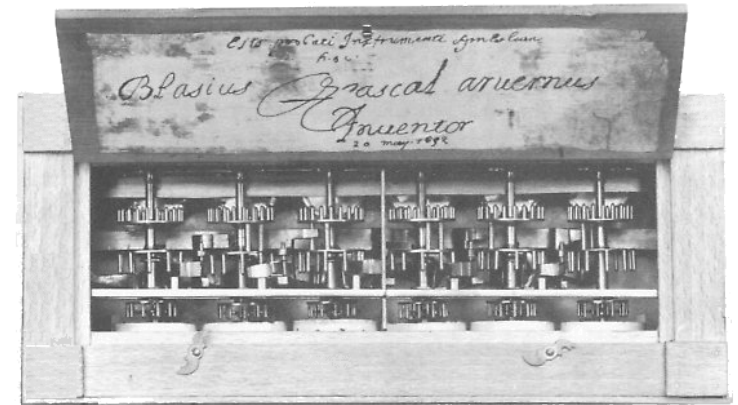 Esto probati Instrumenti symbolum
hoc.
Blasius Pascal aruernus
Inuentor
20 may. 1652